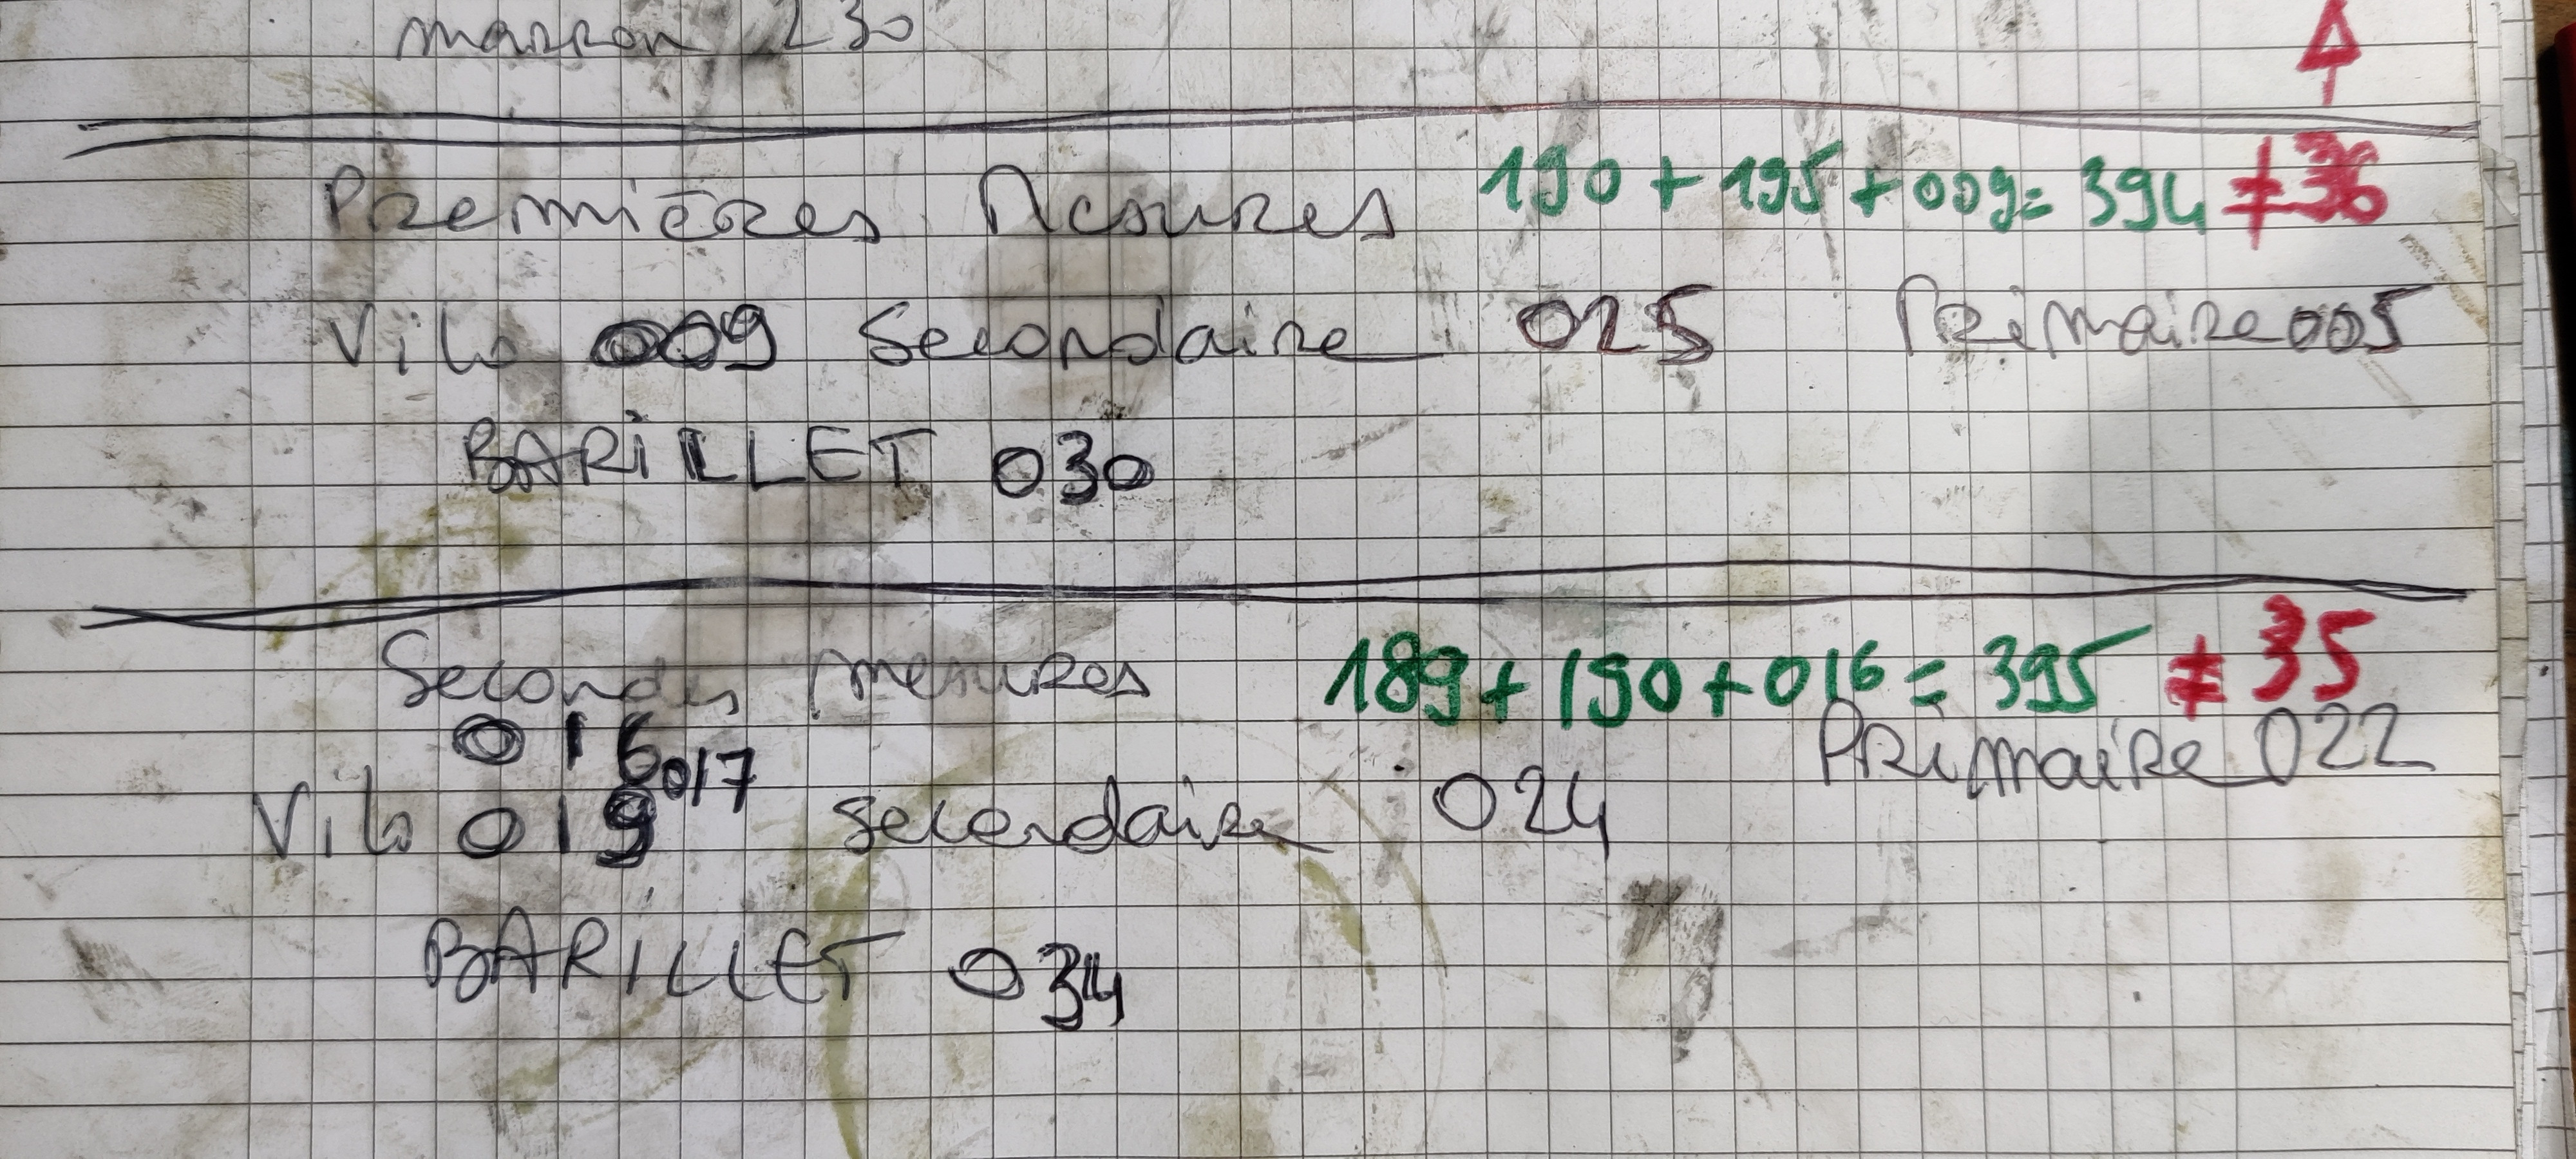 marron 230
Premières Mesures 190 + 195 + 009 = 394 ≠ 36
Vilo 009 Secondaire 025 Primaire 005
BARiLLET 030
Secondes mesures 189 + 190 + 016 = 395 ≠ 35
016 017 Primaire 022
Vilo 019 secondaire 024
BARILLET 034